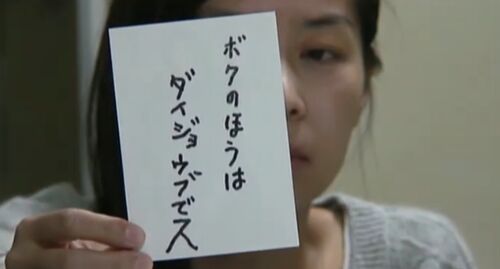 ボクのほうは
ダイジョウブでス